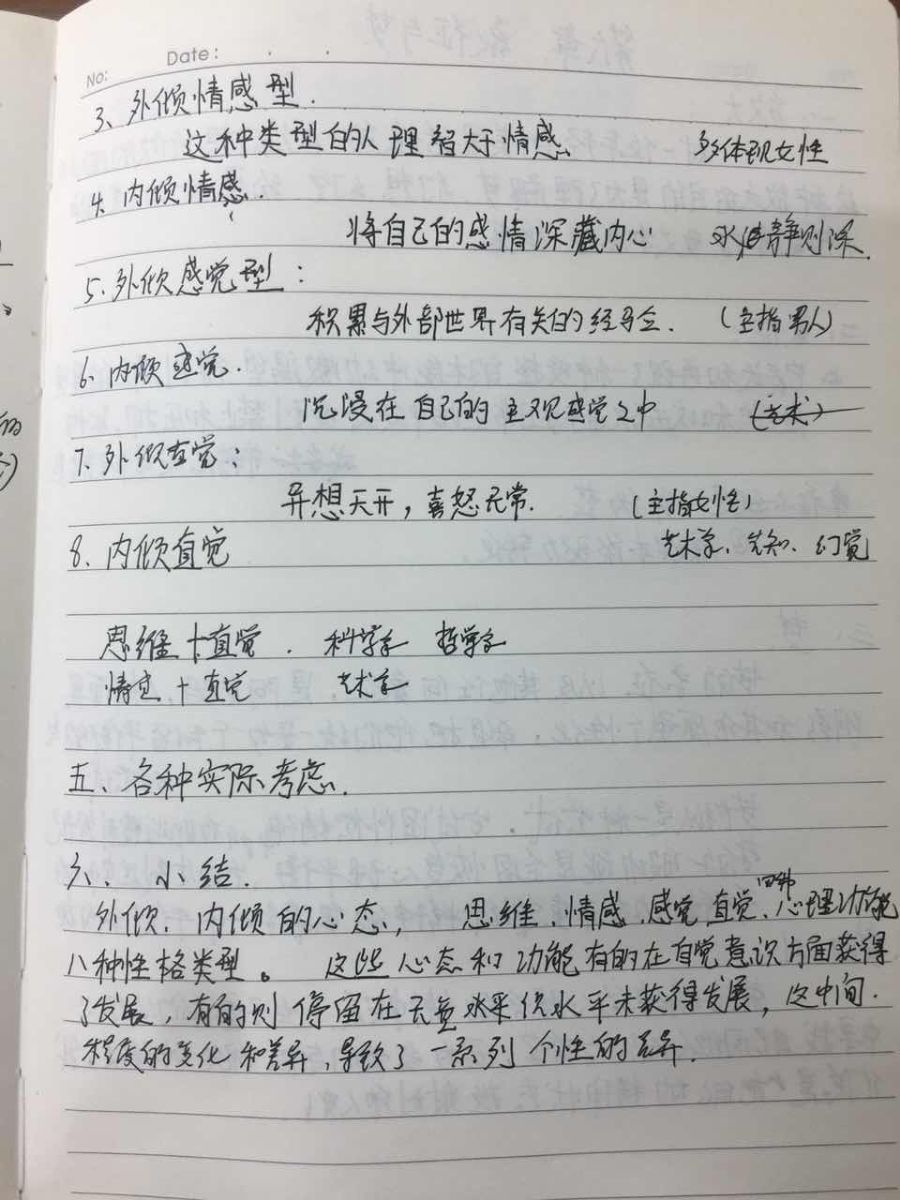 No: Date: . .
3、外倾情感型.
这种类型的人 理智大于情感 多体现女性
4. 内倾情感.
将自己的感情深藏内心 水静则深.
5. 外倾感觉型:
积累与外部世界有关的经验. (主指男人)
6. 内倾感觉.
沉浸在自己的主观感觉之中 (艺术)
7. 外倾直觉:
异想天开, 喜怒无常. (主指女性)
8. 内倾直觉 艺术家、先知、幻觉
思维+直觉. 科学家 哲学家
情感+直觉 艺术家
五、各种实际考虑.
六、小结.
外倾、内倾的心态, 思维、情感、感觉、直觉、四种心理功能
八种性格类型。 这些心态和功能有的在自觉意识方面获得
了发展, 有的则停留在无意 水平未获得发展, 这中间.
程度的变化和差异, 导致了一系列个性的差异.